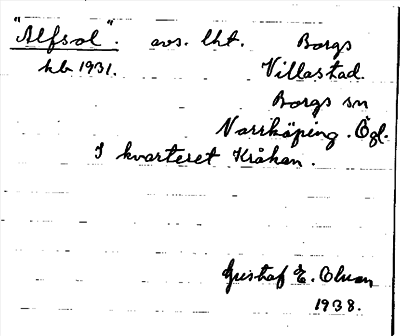 "Alfsol". avs. lht. Borgs
kb. 1931. Villastad.
Borgs sn
Norrköping. Ögl.
I kvarteret Kråkan.
Gustaf E. Olsson
1938.